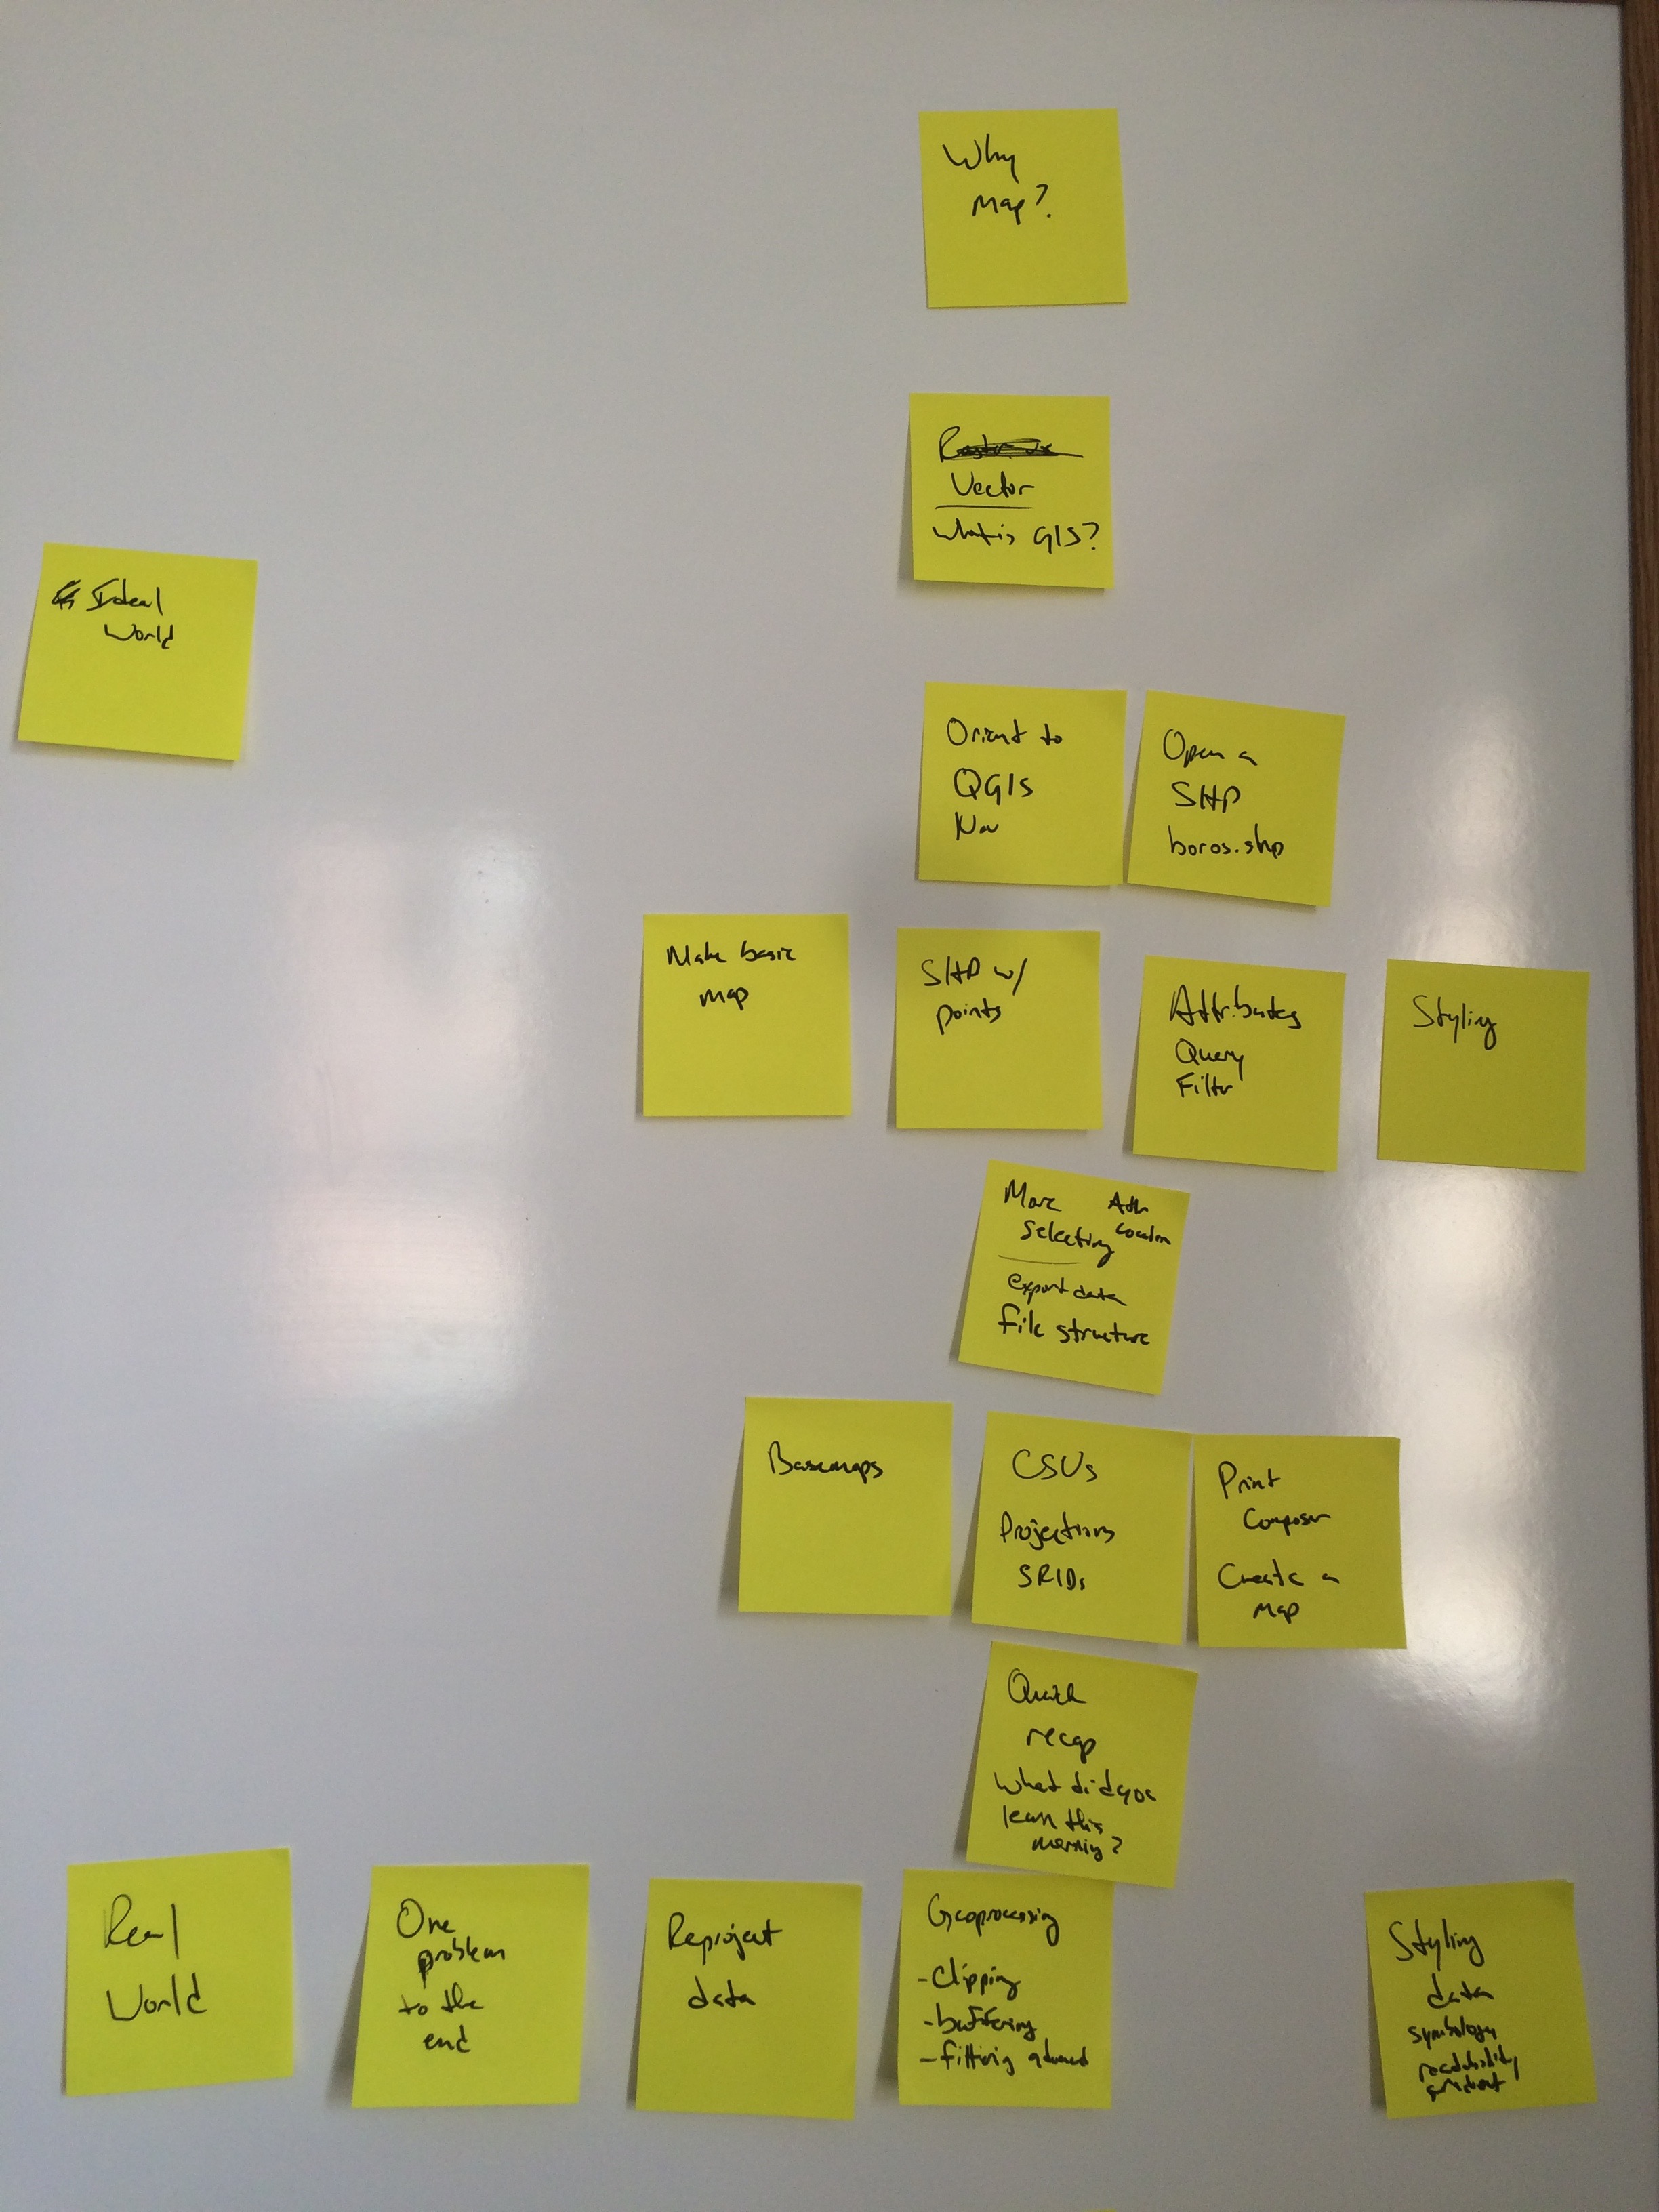 Why
Map?
Vector
what is GIS?
Ideal
World
Orient to
QGIS
Nav
Open a
SHP
boros.shp
Make basic
map
SHP w/
points
Attributes
Query
Filtr
Styling
More Attr
Selecting Location
export data
file structure
Basemaps
CSVs
Projections
SRIDs
Print
Composer
Create a
Map
Quick
recap
What did you
learn this
morning?
Real
World
One
problem
to the
end
Reproject
data
Geoprocessing
- Clipping
- buffering
Styling
data
symbology
readability
gradient